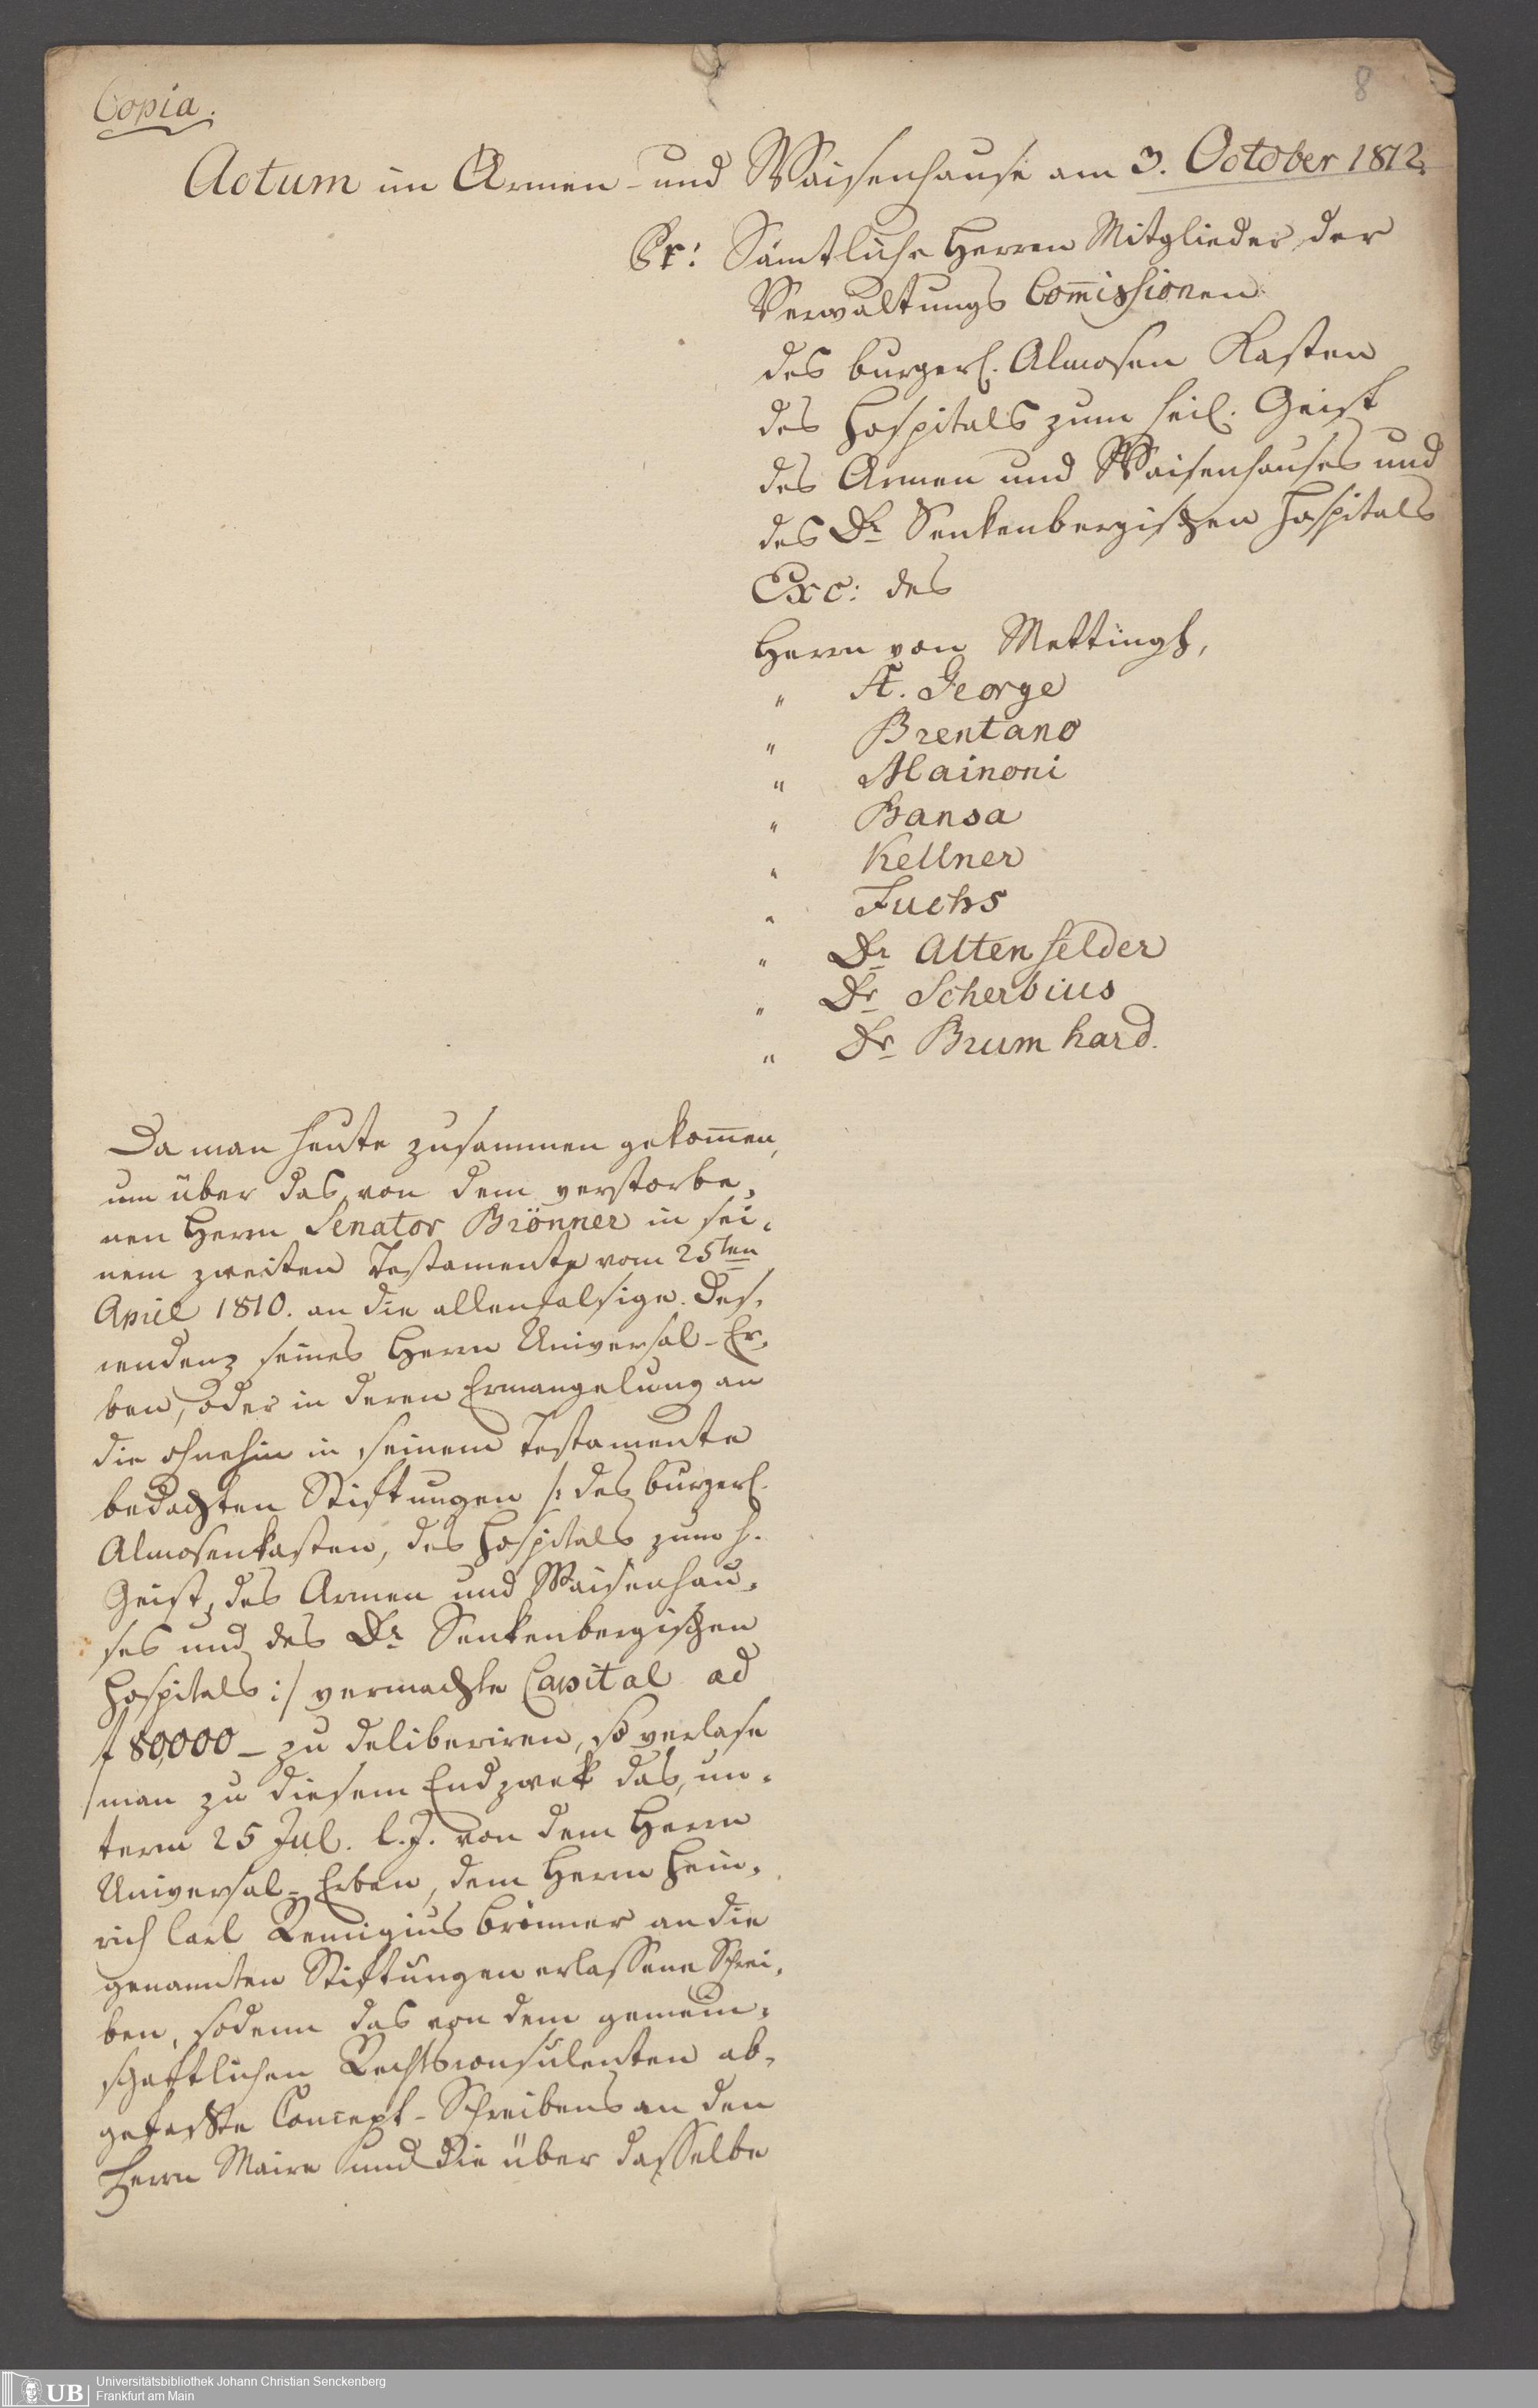 8
Copia.
Actum im Armen- und Waisenhause am 3. October 1812.
Pr: Sämtliche Herren Mitglieder der
Verwaltungs Com̅issionen
des burgerl. Almosen Kasten
des Hospitals zum heil. Geist
des Armen und Waisenhauses und
des Dr Senkenbergischen Hospitals
Exc: des
Herrn von Mettingh,
" St. George
" Brentano
" Mainoni
" Bansa
" Kellner
" Fuchs
" Dr Altenfelder
" Dr Scherbius
" Dr Brumhard.
Da man heute zusammen gekom̅en,
um über das, von dem verstorbe-
nen Herrn Senator Brönner in sei-
nem zweiten Testamente vom 25ten
April 1810. an die allenfalsige Des-
cendenz seines Herrn Universal-Er-
ben, oder in deren Ermangelung an
die ohnehin in seinem Testamente
bedachten Stiftungen /: des burgerl.
Almosenkasten, des Hospitals zum h.
Geist, des Armen und Waisenhau-
ses und des Dr Senkenbergischen
Hospitals :/ vermachte Capital ad
f 80,000 – zu deliberiren, so verlase
man zu diesem Endzwek das, un-
term 25 Jul. l. J. von dem Herrn
Universal-Erben, dem Herrn Hein-
rich Carl Remigius Brönner an die
genannten Stiftungen erlassene Schrei-
ben, sodenn das von dem gemein-
schaftlichen Rechtsconsulenten ab-
gefaßte Concept-Schreibens an den
Herrn Maire und die über dasselbe
UB Universitätsbibliothek Johann Christian Senckenberg
Frankfurt am Main